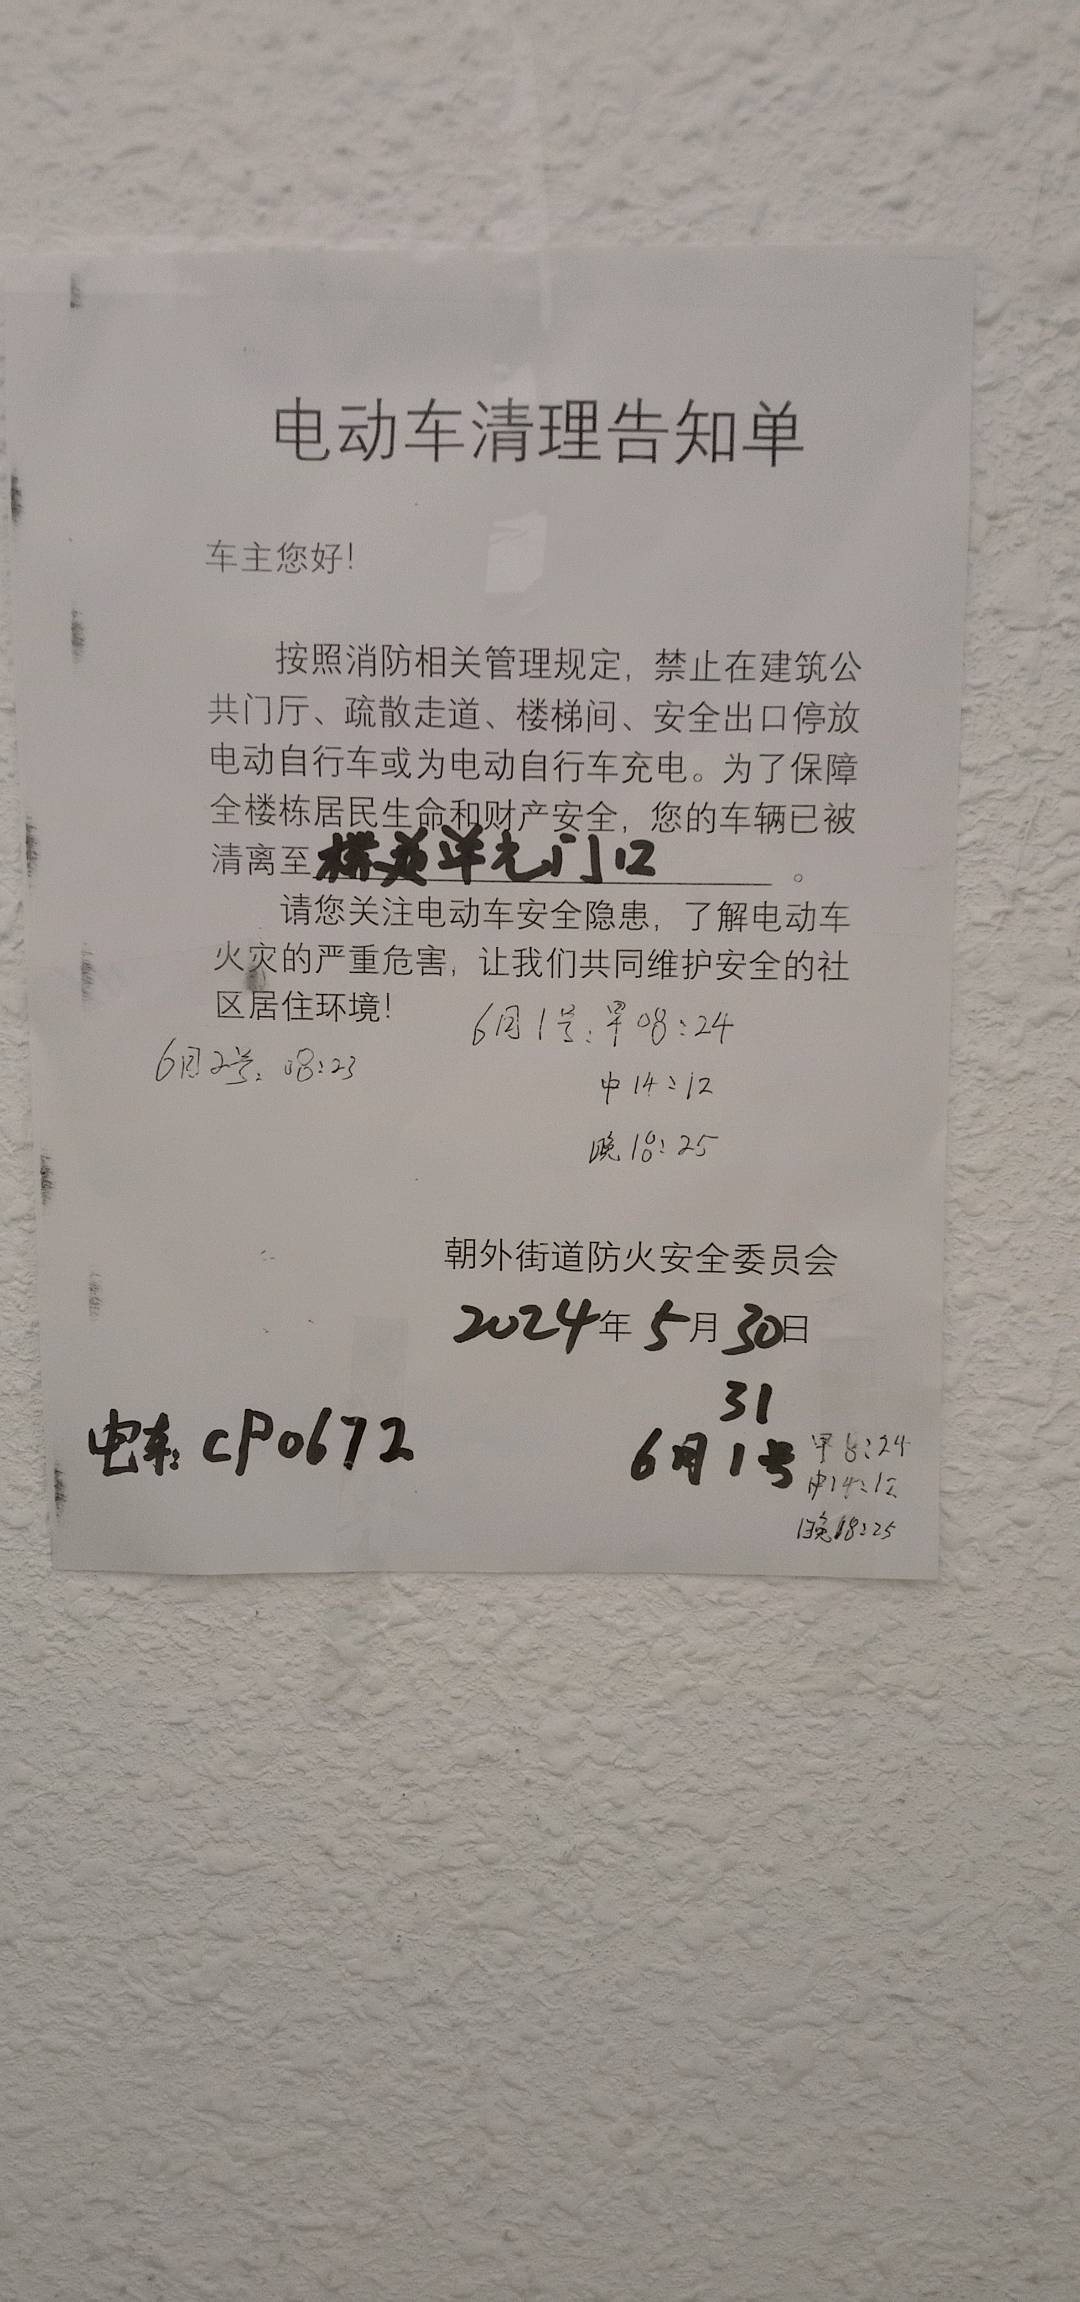 电动车清理告知单
车主您好!
按照消防相关管理规定,禁止在建筑公
共门厅、疏散走道、楼梯间、安全出口停放
电动自行车或为电动自行车充电。为了保障
全楼栋居民生命和财产安全,您的车辆已被
清离至 单元门口 。
请您关注电动车安全隐患,了解电动车
火灾的严重危害,让我们共同维护安全的社
区居住环境!
6月1号:早08:24
6月2号:08:23
中14:12
晚18:25
朝外街道防火安全委员会
2024年5月30日
31
电车:CP0672
6月1号
早8:24
中14:12
晚18:25